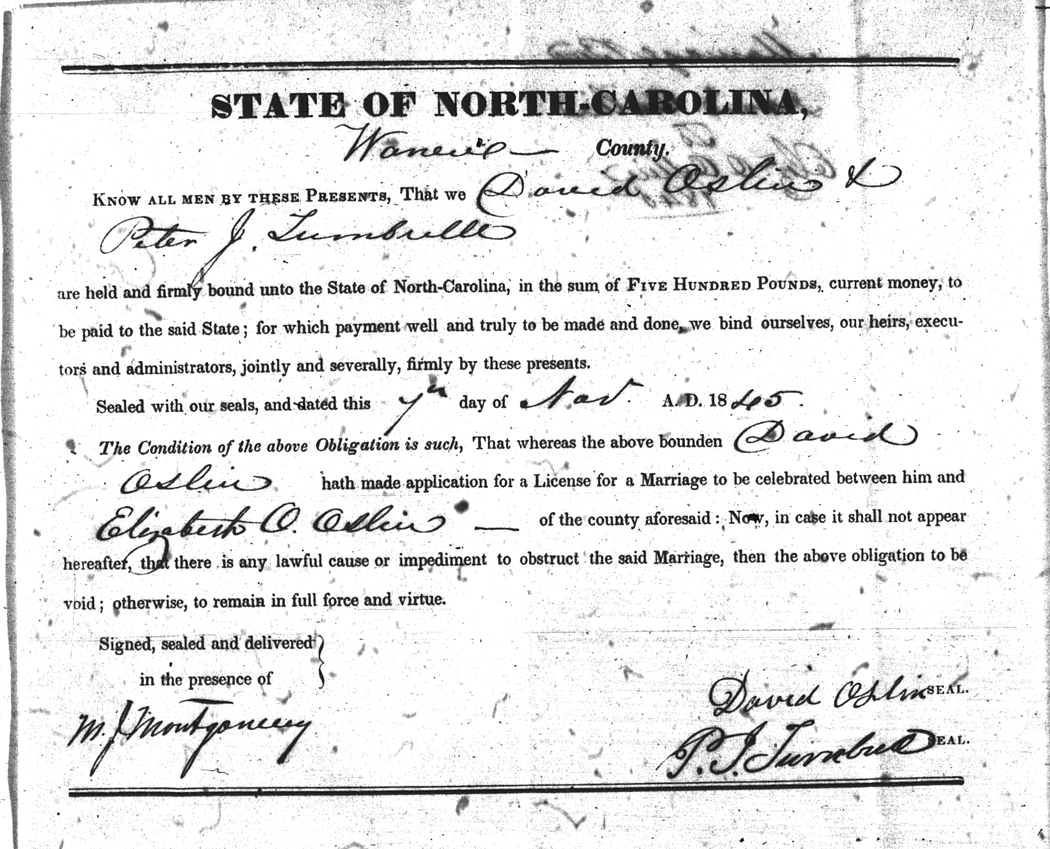 STATE OF NORTH-CAROLINA,
County.
KNOW ALL MEN BY THESE PRESENTS, That we David Oslin &
Peter J. Turnbulle
are held and firmly bound unto the State of North-Carolina, in the sum of FIVE HUNDRED POUNDS, current money, to
be paid to the said State; for which payment well and truly to be made and done, we bind ourselves, our heirs, execu-
tors and administrators, jointly and severally, firmly by these presents.
Sealed with our seals, and dated this 7th day of Nov. A. D. 1845.
The Condition of the above Obligation is such, That whereas the above bounden David
Oslin hath made application for a License for a Marriage to be celebrated between him and
Elizabeth O. Oslin — of the county aforesaid: Now, in case it shall not appear
hereafter, that there is any lawful cause or impediment to obstruct the said Marriage, then the above obligation to be
void; otherwise, to remain in full force and virtue.
Signed, sealed and delivered
in the presence of
M. J. Montgomery
David Oslin SEAL.
P. J. Turnbull SEAL.